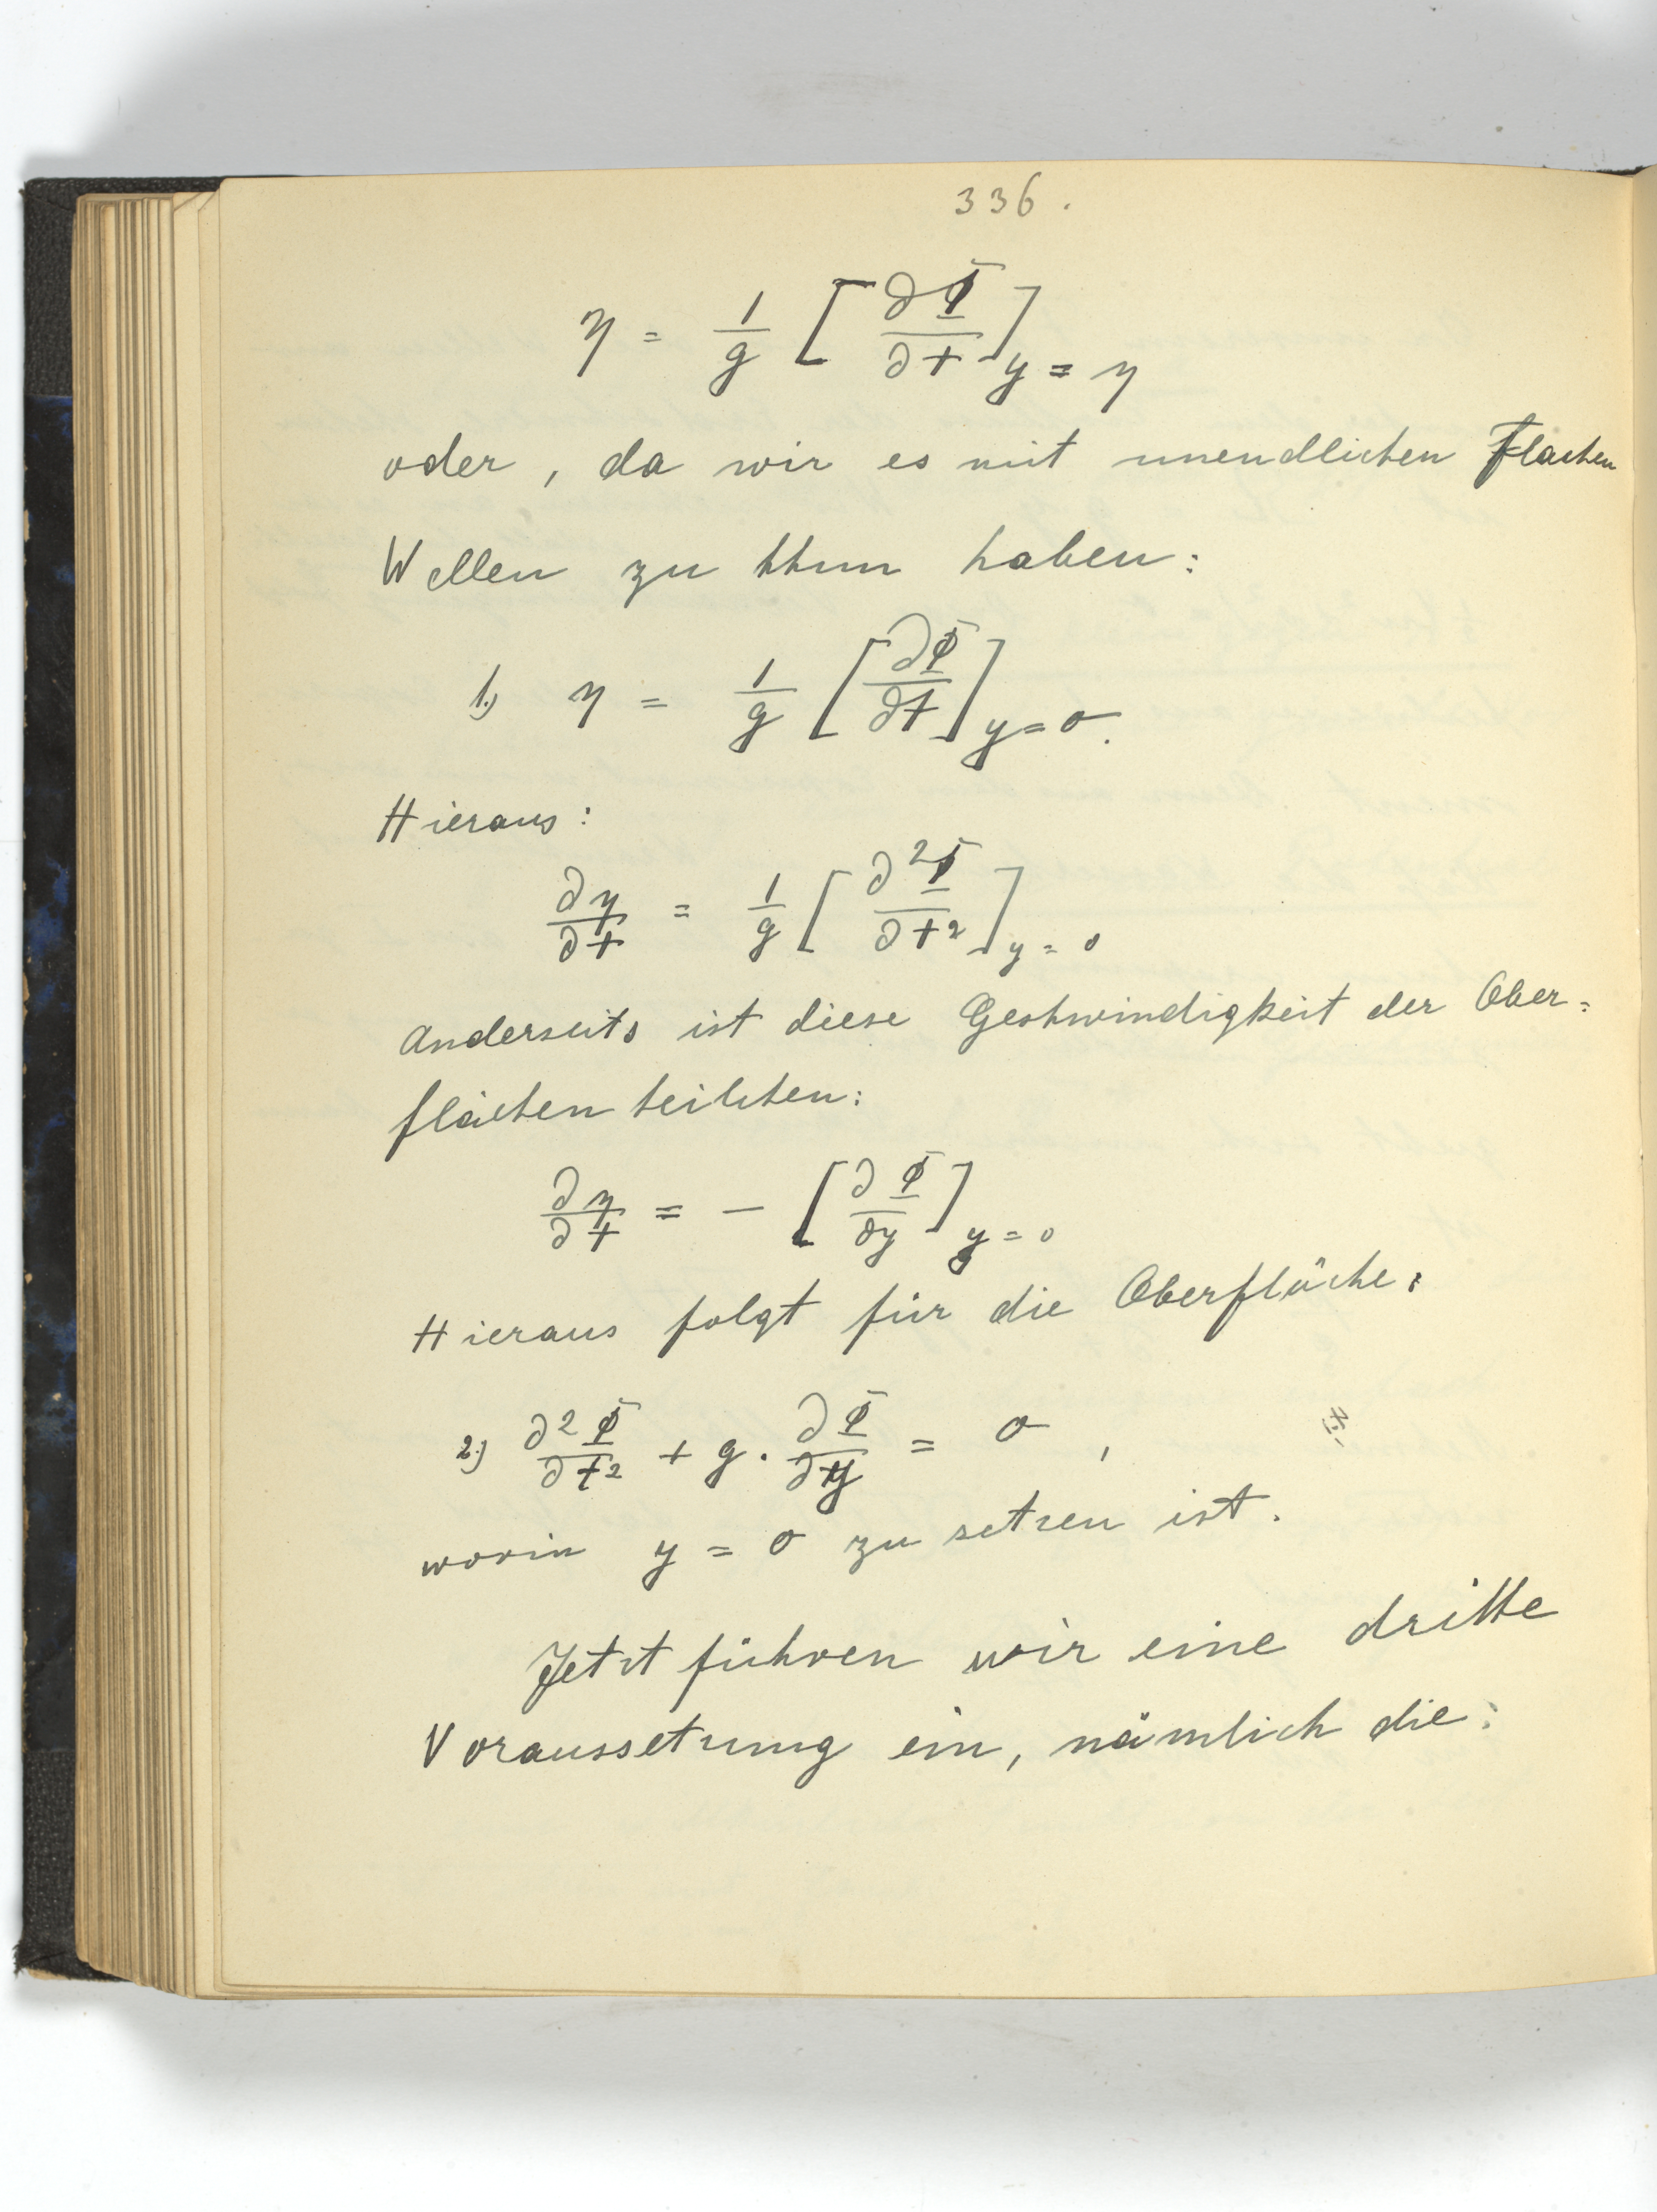 336.
η = 1/g [∂Φ/∂t]y = η
oder, da wir es mit unendlichen Flachen
Wellen zu thun haben:
1.) η = 1/g [∂Φ/∂t]y=0.
Hieraus:
∂η/∂t = 1/g [∂²Φ/∂t²]y = 0
Anderseits ist diese Geshwindigkeit der Ober=
flächen teilchen:
∂η/∂t = - [∂Φ/∂y]y = 0
Hieraus folgt für die Oberfläche:
2.) ∂²Φ/∂t² + g. ∂Φ/∂y = 0,
worin y = 0 zu setzen ist.
Jetzt führen wir eine dritte
Voraussetzung ein, nämlich die: